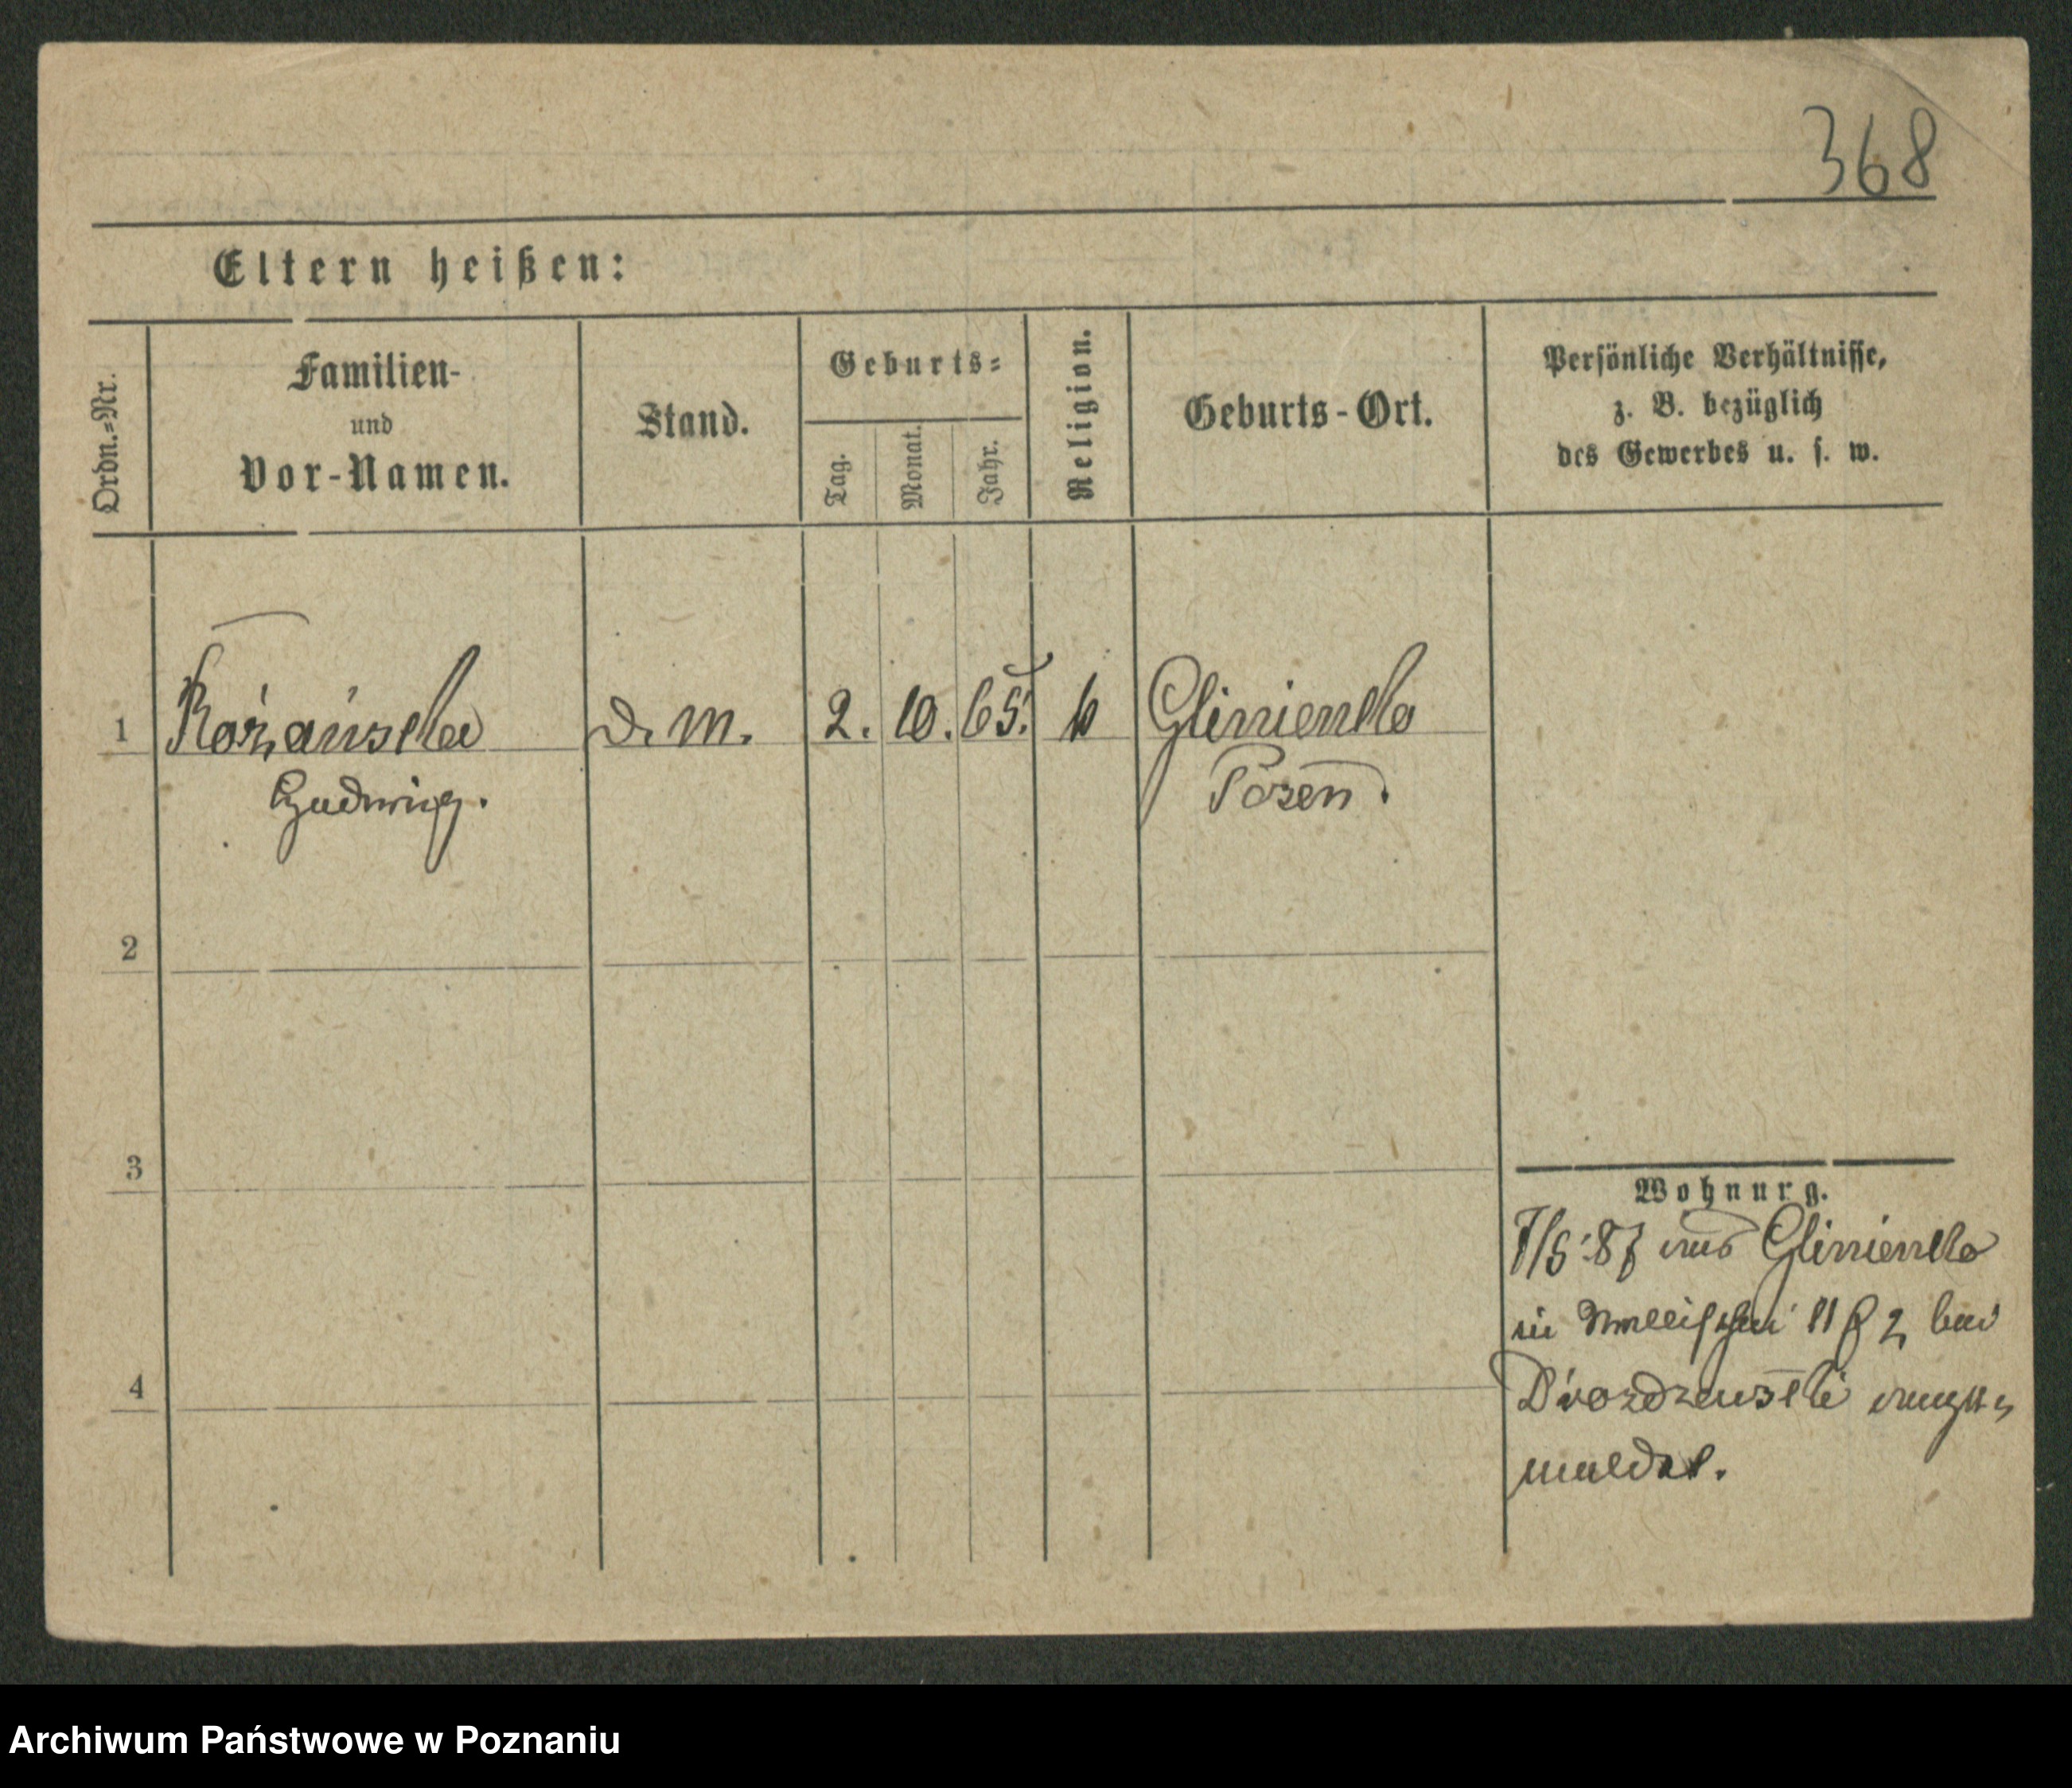 368
Eltern heißen:
Ordn.=Nr.
Familien-
und
Vor-Namen.
Stand.
Geburts=
Tag.
Monat.
Jahr.
Religion.
Geburts-Ort.
Persönliche Verhältnisse,
z. B. bezüglich
des Gewerbes u. s. w.
1
Rożańska
D. M.
2. 10. 65.
k
Glinienko
Hedwig.
Posen.
2
3
4
Wohnung.
7/5. 87 aus Glinienko
in 11 2 bei
ange
meldet.
Archiwum Państwowe w Poznaniu